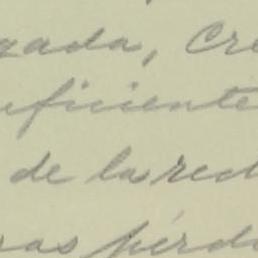 gada, Cre
uficiente
de la red
ras pérd